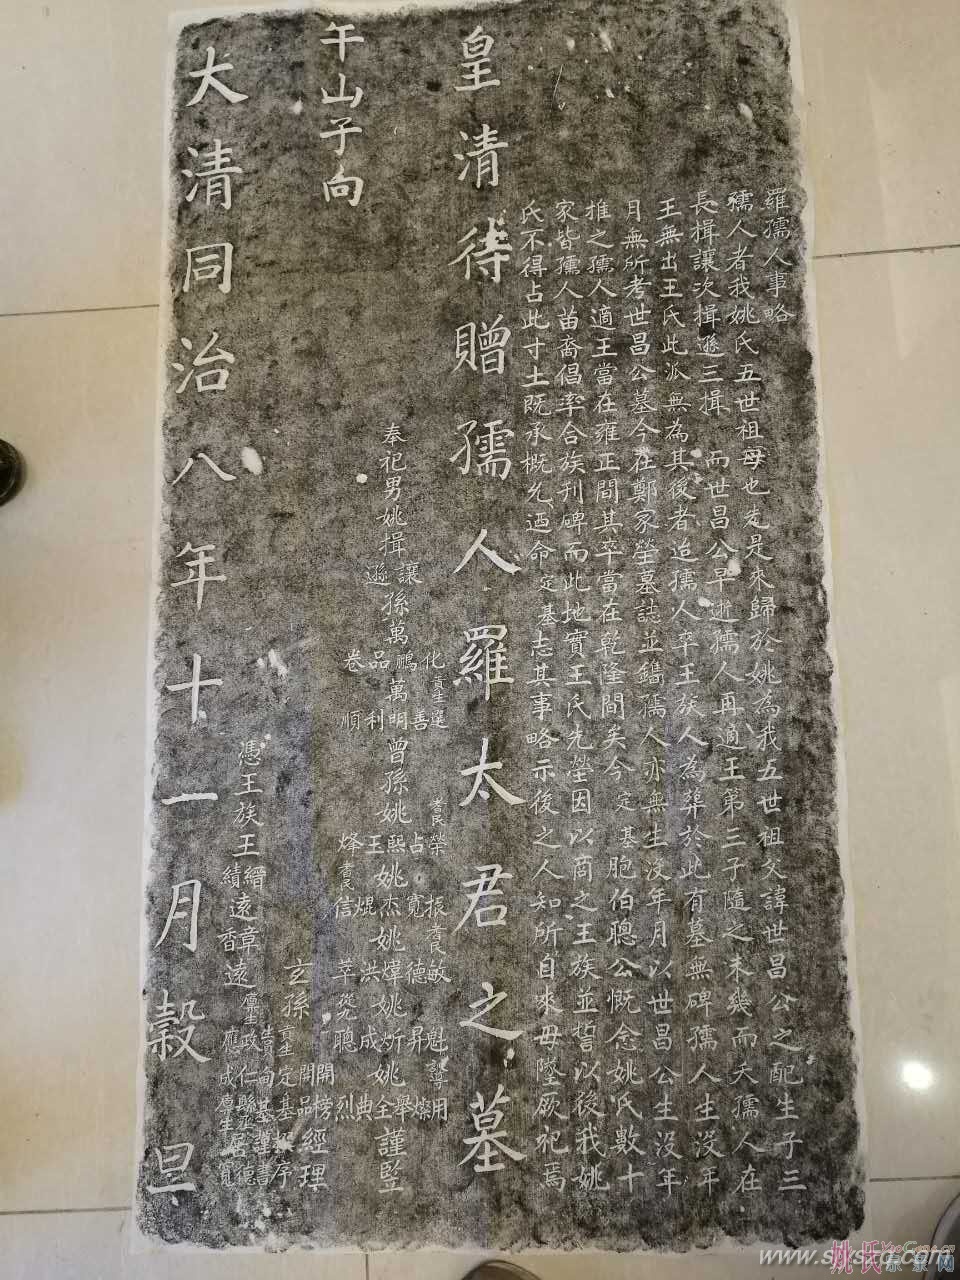 羅孺人事略
孺人者我姚氏五世祖母也先是來歸於姚為我五世祖父諱世昌公之配生子三
長揖讓次揖遜三揖 而世昌公早逝孺人再適王第三子隨之未幾而夭孺人在
王無出王氏此派無為其後者迨孺人卒王族人為葬於此有墓無碑孺人生沒年
月無所考世昌公墓今在鄭家塋墓誌並鐫孺人亦無生沒年月以世昌公生沒年
推之孺人適王當在雍正間其卒當在乾隆間矣今定基胞伯聰公慨念姚氏數十
家皆孺人苗裔倡率合族刋碑而此地實王氏先塋因以商之王族並誓以後我姚
氏不得占此寸土既承概允迺命定基志其事略示後之人知所自來毋墜厥祀焉
皇清待贈孺人羅太君之墓
奉祀男姚揖讓遜孫萬化鵬品卷萬選善明利順曾孫姚榮占熙玉烽姚振寬杰焜信姚敏德煒洪萃姚魁昇炘成聰姚用燦舉全典烈謹竪
玄孫
開榜
開品
經理
貢生定基撰序
午山子向
憑王族王縉績遠章香遠
大清同治八年十一月穀旦
姚氏
www.sxsxg.com